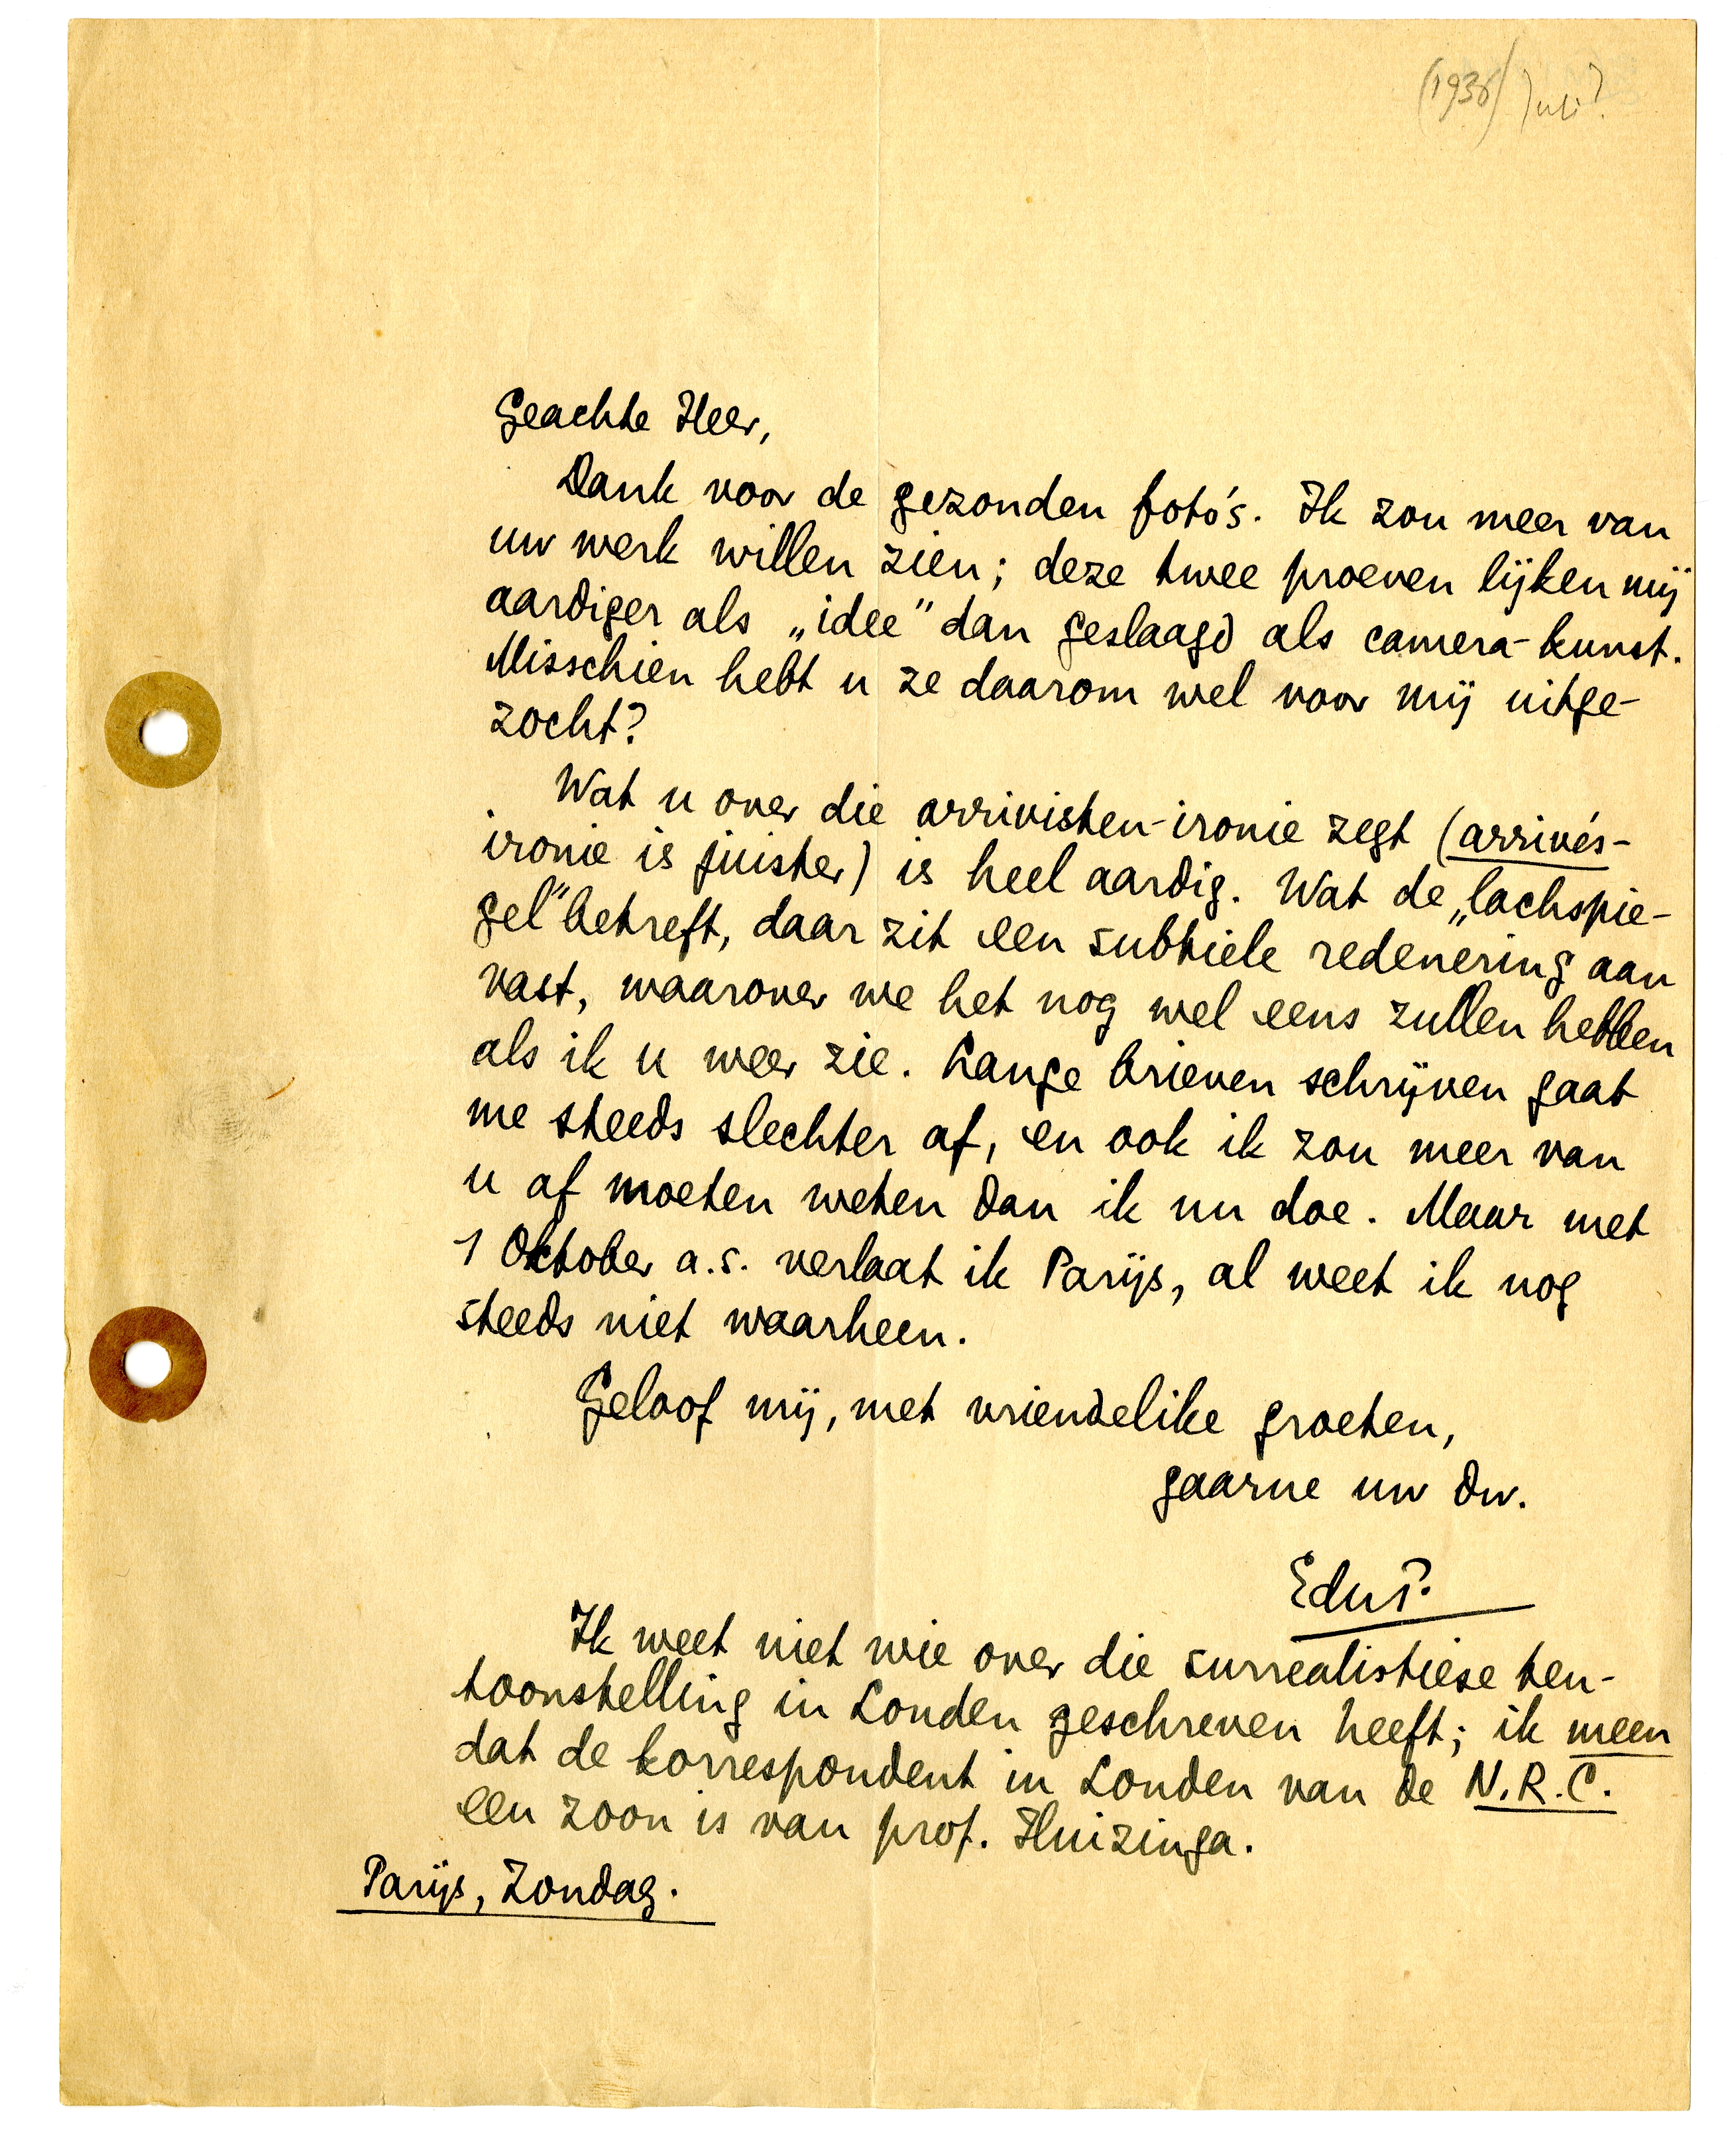 (1936) Juli?
Geachte Heer,
Dank voor de gezonden foto's. Ik zou meer van
uw werk willen zien; deze twee proeven lijken mij
aardiger als „idee” dan geslaagd als camera-kunst.
Misschien hebt u ze daarom wel voor mij uitge-
zocht?
Wat u over die arrivisten-ironie zegt (arrivés-
ironie is juister) is heel aardig. Wat de „lachspie-
gel” betreft, daar zit een subtiele redenering aan
vast, waarover we het nog wel eens zullen hebben
als ik u weer zie. Lange brieven schrijven gaat
me steeds slechter af, en ook ik zou meer van
u af moeten weten dan ik nu doe. Maar met
1 Oktober a.s. verlaat ik Parijs, al weet ik nog
steeds niet waarheen.
Geloof mij, met vriendelike groeten,
gaarne uw dw.
EduP.
Ik weet niet wie over die surrealistiese ten-
toonstelling in Londen geschreven heeft; ik meen
dat de korrespondent in Londen van de N.R.C.
een zoon is van prof. Huizinga.
Parijs, Zondag.